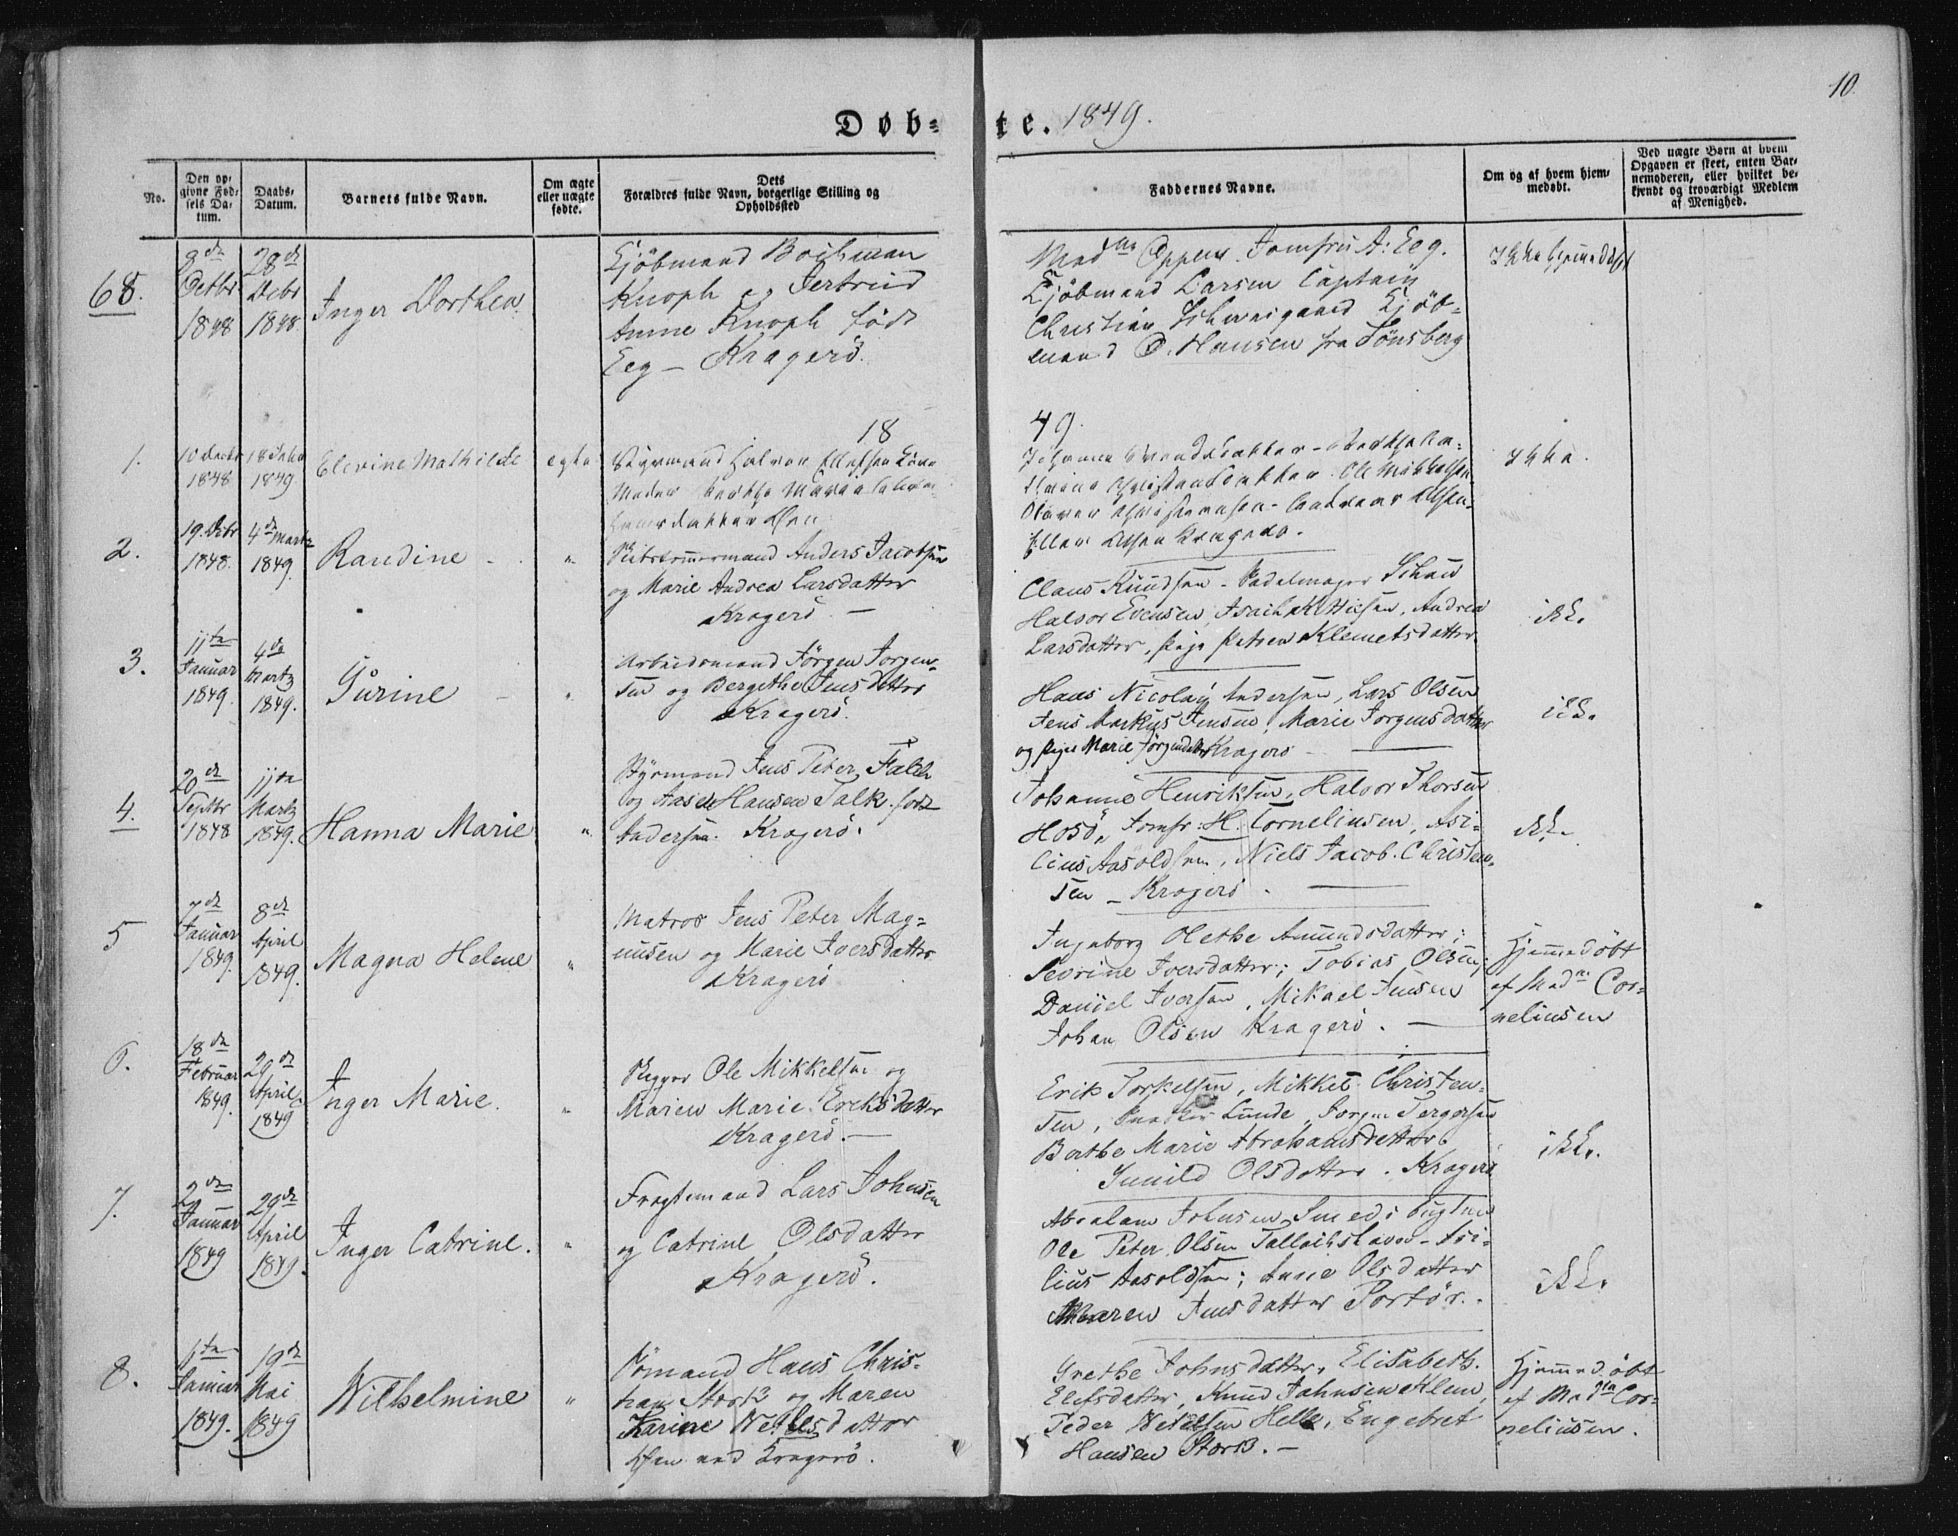 10.
Døb- te. 1849.
No.
Den op-
givne Fød-
sels Da-
tum.
Daabs-
Datum.
Barnets fulde Navn.
Om ægte
eller uægte
fødte.
Dets
Forældres fulde Navn, borgerlige Stilling og
Opholdssted
Faddernes Navne.
Om og af hvem hjem-
medøbt.
Ved uægte Børn af hvem
Opgaven er skeet, enten Bar-
nemoderen, eller hvilket be-
kjendt og troværdigt Medlem
af Menighed.
68.
8de
Octbr
1848
28de
Decbr
1848
Inger Dorthea.
Kjöbmand Boihman
Knoph og Jertrud
Anne Knoph födt
Eeg - Kragerö.
Madme Oppen. Jomfru A: Eeg.
Kjöbmand Larsen Captain
Christian Kjöb-
mand O. Hansen fra Tönsberg
Ikke hjemmedöbt
18 49.
1.
1848
1849
Elevine Mathilde
egte
Styrmand Halvor Ellefsen
Ole Mikkelsen
Ellen Olsen Kragerö.
Ikke.
2.
19. Decbr
1848.
4de Martz
1849.
Randine -
"
Skibstömmermand Anders Jacobsen
og Marie Andrea Larsdatter
Kragerö -
Claus Knudsen - Padelmager Schau
Halvor Evensen, Andrea
Larsdatter, Pige Petrea Klemetsdatter
ikke
3.
11te
Januar
1849.
4de
Martz
1849.
Gurine -
"
Arbeidsmand Jörgen Jorgen-
sen og Bergithe Jensdatter
Kragerö.
Hans Nicolay Andersen, Lars Olsen
Jens Markus Jensen, Marie Jorgensdatter
og Pige Marie Jörgensdatter Kragerö -
ikke
4.
20de
Septbr
1848
11te
Martz
1849.
Hanna Marie
"
Styrmand Jens Peter Falck
og Aase Hansen Falk. født
Andersen. Kragerö.
Johannes Henriksen, Halvor Thorsen
Hosö, Jomfr: H. Corneliusen, Asi-
lius Aasoldsen, Niels Jacob Christen-
sen - Kragerö. -
ikke
5
Januar
1849.
8de
April
1849.
Magna Helene
"
Matros Jens Peter Mag-
nusen og Marie Iversdatter
Kragerö
Ingeborg Olethe Amundsdatter;
Sevrine Iversdatter; Tobias Olsen;
Daniel Iversen, Mikael Jensen
Johan Olsen Kragerö. -
Hjemmedöbt
af Madm Cor-
neliusen
6.
18de
Februar
1849.
29de
April
1849
Inger Marie.
"
Rygger Ole Mikkelsen og
Maren Marie Eriksdatter
Kragerö. -
Erik Torkelsen, Mikkel Christen-
sen, Lunde, Jorgen Tergersen
Berthe Marie Abrahamsdatter
Gunild Olsdatter. Kragerö
ikke.
7.
2den
Januar
1849
29de
April
1849.
Inger Catrine.
"
Fragtemand Lars Johnsen
og Catrine Olsdatter
Kragerö.
Abraham Johnsen Smed i Bugten
Ole Peter Olsen - Asi-
lius Aasoldsen; Anne Olsdatter
Maren Jensdatter Portör.
ikke
8.
Januar
1849.
19de
Mai
1849
Wilhelmine
"
Sömand Hans Chris-
tian Stork og Maren
Karine Nielsdatter
ved Kragerö.
Grethe Johnsdatter, Elisabeth
Elefsdatter, Knud Johnsen Klem,
Peder Nielsen Helle, Engebret
Hansen Stork. -
Hjemmedöbt
af Madm Cor-
neliusen.